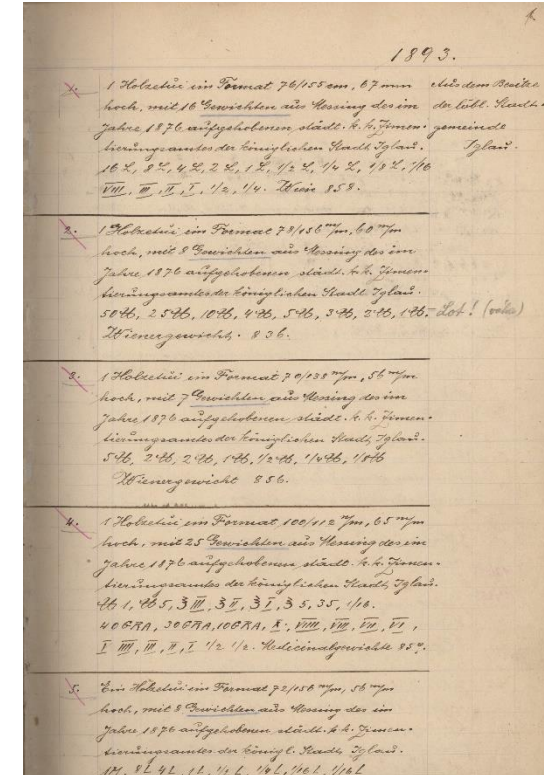 1893.
1. 1 Holzetui im Format 76/155 cm, 67 mm
hoch, mit 16 Gewichten aus Messing des im
Jahre 1876 aufgehobenen, städt. k. k. Zimen-
tierungsamtes der königlichen Stadt Iglau.
16 L, 8 L, 4 L, 2 L, 1 L, 1/2 L, 1/4 L, 1/8 L, 1/16
VIII, III, II, I, 1/2, 1/4. Wien 858.
Aus dem Besitze
der löbl. Stadt-
gemeinde
Iglau.
2. 1 Holzetui im Format 78/156 m/m, 60 m/m
hoch, mit 8 Gewichten aus Messing des im
Jahre 1876 aufgehobenen städt. k. k. Zimen-
tierungsamtes der königlichen Stadt Iglau.
50 ℔, 25 ℔, 10 ℔, 4 ℔, 5 ℔, 3 ℔, 2 ℔, 1 ℔. - Lot!
Wienergewicht. 836.
3. 1 Holzetui im Format 70/138 m/m, 56 m/m
hoch, mit 7 Gewichten aus Messing des im
Jahre 1876 aufgehobenen, städt. k. k. Zimen-
tierungsamtes der königlichen Stadt Iglau.
5 ℔, 2 ℔, 2 ℔, 1 ℔, 1/2 ℔, 1/4 ℔, 1/8 ℔
Wienergewicht 856.
4. 1 Holzetui im Format, 100/112 m/m, 65 m/m
hoch, mit 25 Gewichten aus Messing des im
Jahre 1876 aufgehobenen, städt. k. k. Zimen-
tierungsamtes der königlichen Stadt, Iglau.
℔ 1, ℔ 5, ʒ III, ʒ II, ʒ I, ʒ 5, 35, 1/16.
40 GRA, 30 GRA, 10 GRA, X, VIIII, VIII, VII, VI,
I IIII, III, II, I 1/2 1/2. Medicinalgewichte
5. Ein Holzetui im Format 72/156 m/m, 56 m/m
hoch, mit 8 Gewichten aus Messing des im
Jahre 1876 aufgehobenen städt. k. k. Zimen-
tierungsamtes der königl. Stadt, Iglau.
8 L 4 L, 1 L, 1/4 L, 1/8 L, 1/16 L